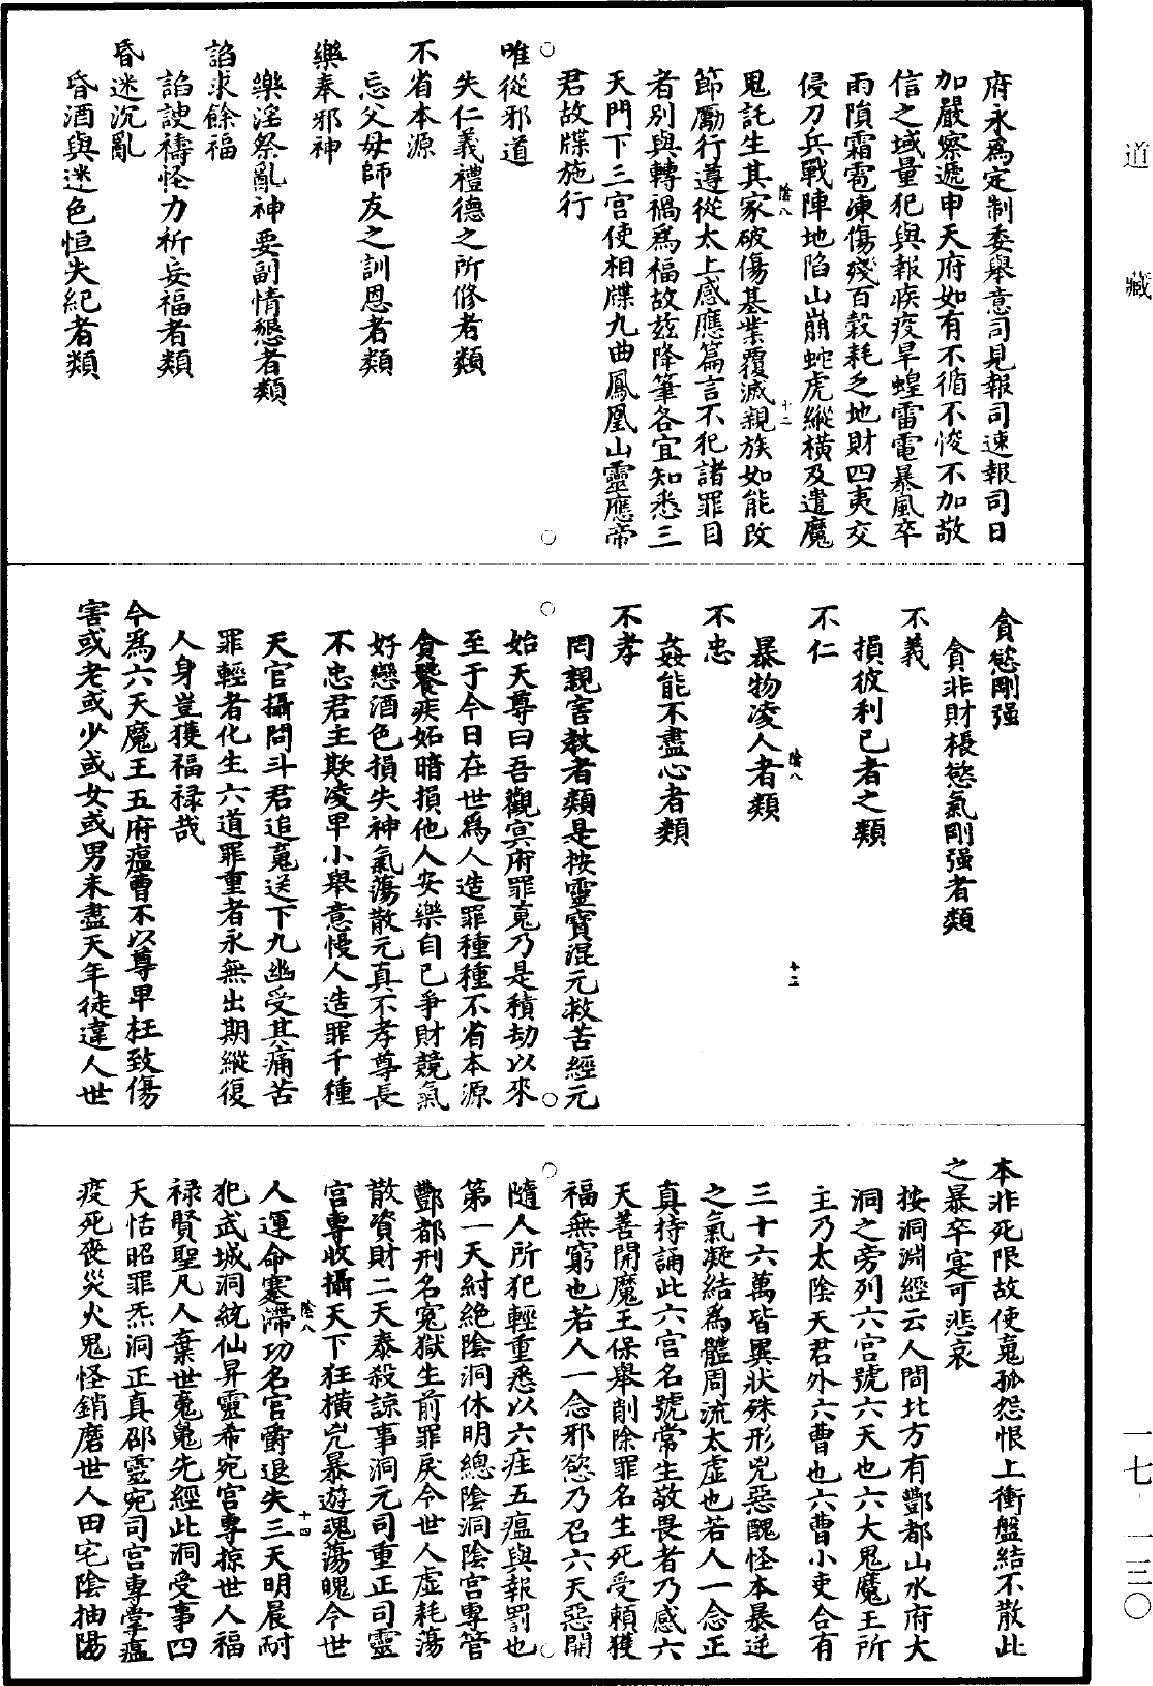 道藏
府永爲定制委舉意司見報司速報司日
加嚴察遞申天府如有不循不悛不加敬
信之域量犯與報疾疫旱蝗雷電暴風卒
雨隕霜雹凍傷殘百穀耗乏地財四夷交
侵刀兵戰陣地陷山崩蛇虎縱橫及遣魔
陰八
十二
鬼託生其家破傷基業覆滅親族如能改
節勵行遵從太上感應篇言不犯諸罪目
者別與轉禍爲福故茲降筆各宜知悉三
天門下三官使相牒九曲鳳凰山靈應帝
君故牒施行
唯從邪道
失仁義禮德之所修者類
不省本源
忘父母師友之訓恩者類
樂奉邪神
樂淫祭亂神要副情懇者類
諂求餘福
諂諛禱怪力祈妄福者類
昏迷沉亂
昏酒與迷色恒失紀者類
貪慾剛强
貪非財根慾氣剛强者類
不義
損彼利己者之類
不仁
陰八
十三
暴物凌人者類
不忠
姦能不盡心者類
不孝
罔親害教者類是按靈寶混元救苦經元
始天尊曰吾觀冥府罪䰟乃是積劫以來
至于今日在世爲人造罪種種不省本源
貪饕疾妬暗損他人安樂自己爭財競氣
好戀酒色損失神氣蕩散元真不孝尊長
不忠君主欺凌卑小舉意慢人造罪千種
天官攝問斗君追䰟送下九幽受其痛苦
罪輕者化生六道罪重者永無出期縱復
人身豈獲福禄哉
今爲六天魔王五府瘟曹不以尊卑枉致傷
害或老或少或女或男未盡天年徒違人世
本非死限故使䰟孤怨恨上衝盤結不散此
之暴卒寔可悲哀
按洞淵經云人間北方有酆都山水府大
洞之旁列六宮號六天也六大鬼魔王所
主乃太陰天君外六曹也六曹小吏合有
三十六萬皆異狀殊形兇惡醜怪本暴逆
之氣凝結爲體周流太虛也若人一念正
真持誦此六宮名號常生敬畏者乃感六
天善開魔王保舉削除罪名生死受賴獲
福無窮也若人一念邪慾乃召六天惡開
隨人所犯輕重悉以六疰五瘟與報罰也
第一天紂絕陰洞休明總陰洞陰宮專管
酆都刑名寃獄生前罪戾今世人虛耗蕩
散資財二天泰殺諒事洞元司重正司靈
宮專收攝天下狂橫兇暴遊魂蕩魄今世
陰八
十四
人運命蹇滯功名官爵退失三天明晨耐
犯武城洞統仙昇靈希宛宮專掠世人福
禄賢聖凡人棄世䰟䰟先經此洞受事四
天恬昭罪炁洞正真邵靈宛司宮專掌瘟
疫死喪災火鬼怪銷磨世人田宅陰抽陽
一七·一三〇